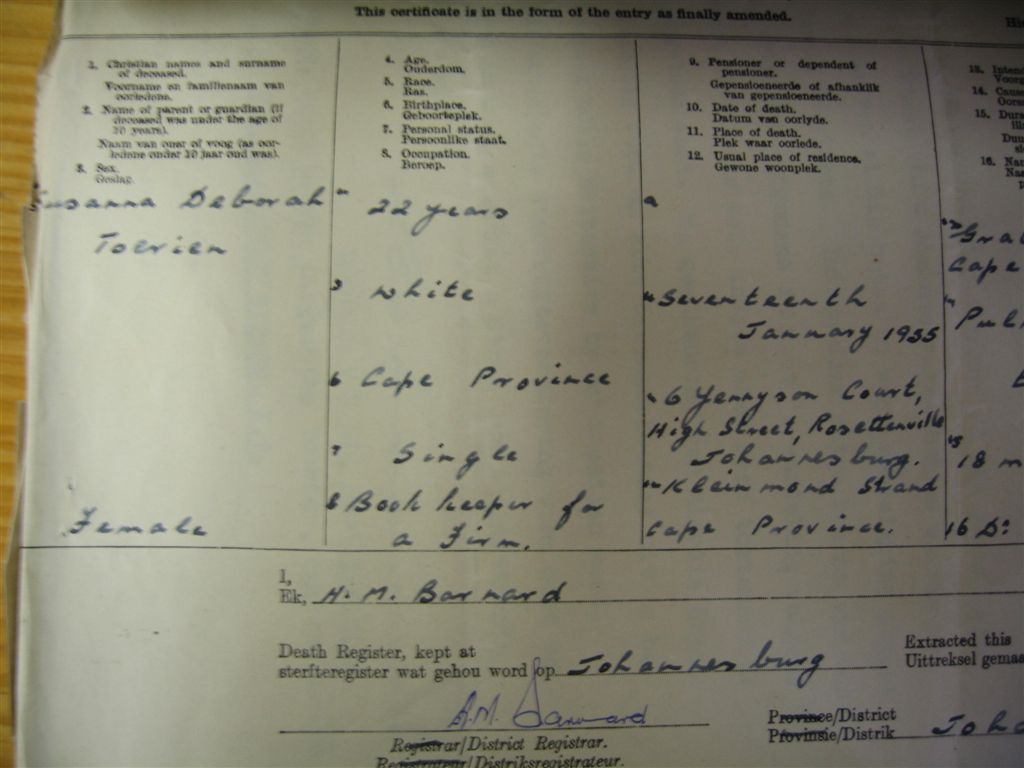 This certificate is in the form of the entry as finally amended.
1. Christian names and surname
of deceased.
Voorname en familienaam van
oorledene.
2. Name of parent or guardian (if
deceased was under the age of
10 years).
Naam van ouer of voog (as oor-
ledene onder 10 jaar oud was).
3. Sex.
Geslag.
Susanna Deborah
Toerien
Female
4. Age.
Ouderdom.
5. Race.
Ras.
6. Birthplace.
Geboorteplek.
7. Personal status.
Persoonlike staat.
8. Occupation.
Beroep.
22 years
White
6 Cape Province
7 Single
8 Bookkeeper for
a Firm.
9. Pensioner or dependent of
pensioner.
Gepensioeneerde of afhanklik
van gepensioeneerde.
10. Date of death.
Datum van oorlyde.
11. Place of death.
Plek waar oorlede.
12. Usual place of residence.
Gewone woonplek.
Seventeenth
January 1935
6 Yennyson Court,
High Street, Rosettenville
Johannesburg.
Kleinmond Strand
Cape Province.
13.
14.
15.
16.
Gra
Cape
18 m
16 D:
I,
Ek, H. M. Barnard
Death Register, kept at
sterfteregister wat gehou word op Johannesburg
Extracted this
Uittreksel gemaa
H.M. Barnard
Registrar/District Registrar.
Registrateur/Distriksregistrateur.
Province/District
Provinsie/Distrik Joha